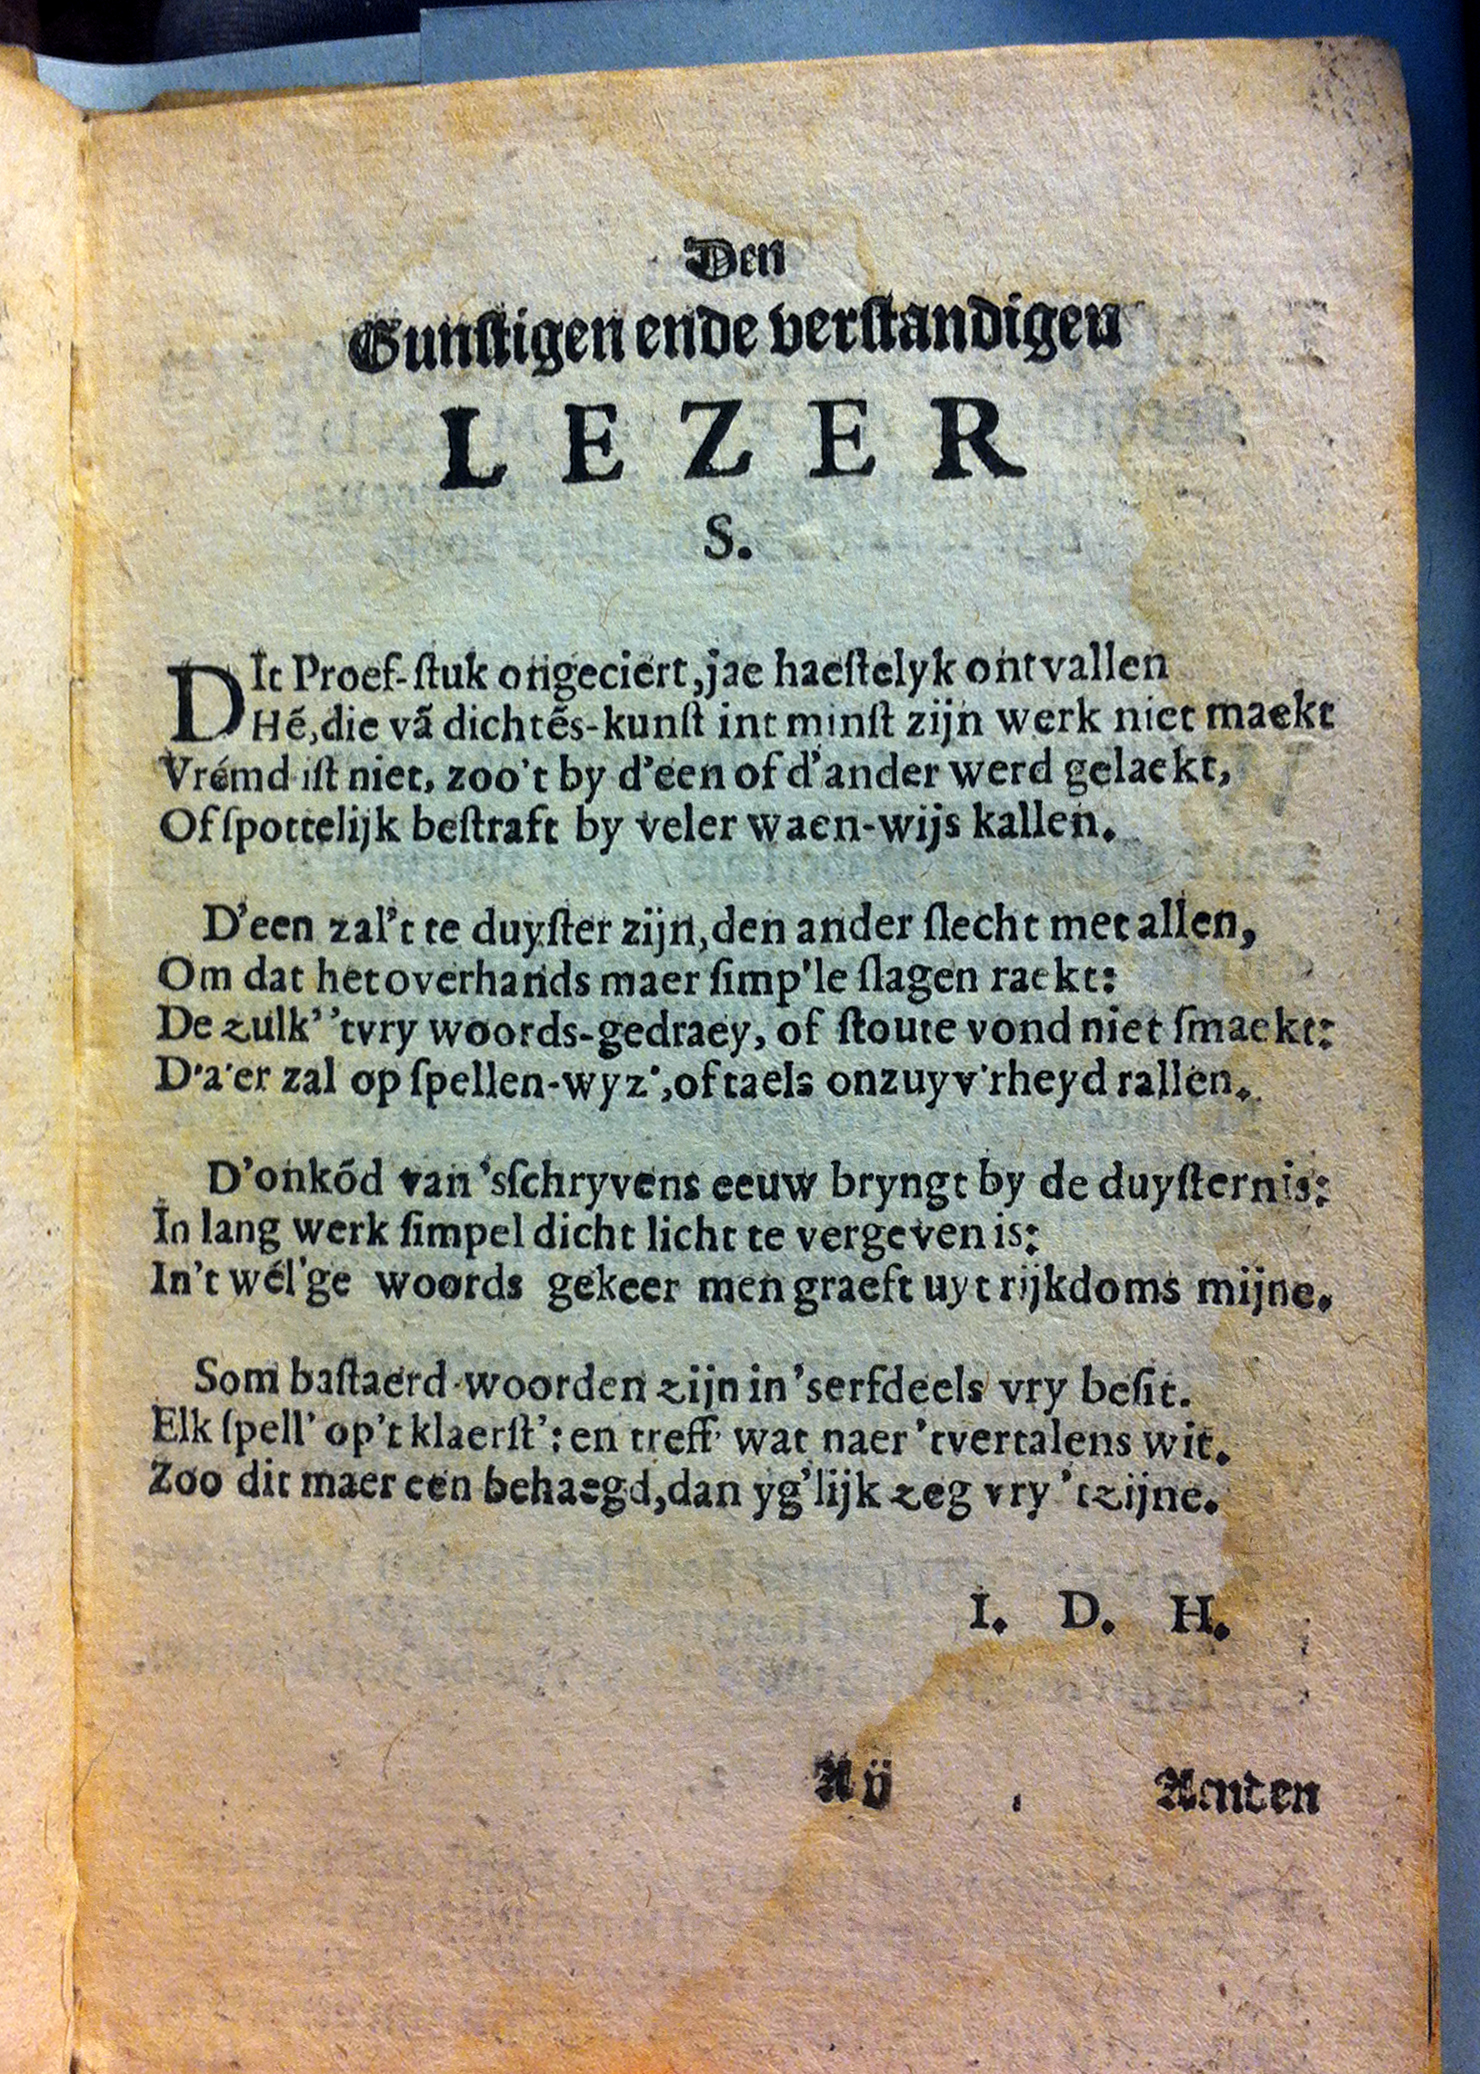 Den
Gunſtigen ende verſtandigen
LEZER
S.
DIt Proef-ſtuk ongeciert, jae haeſtelyk ontvallen
Hẽ, die vã dichtẽs-kunſt int minſt zijn werk niet maekt
Vrémd iſt niet, zoo't by d'een of d'ander werd gelaekt,
Of ſpottelijk beſtraft by veler waen-wijs kallen.
D'een zal't te duyſter zijn, den ander ſlecht met allen,
Om dat het overhands maer ſimp'le ſlagen raekt:
De zulk' 'tvry woords-gedraey, of ſtoute vond niet ſmaekt:
D'a'er zal op ſpellen-wyz', of taels onzuyv'rheyd rallen.
D'onkõd van 'sſchryvens eeuw bryngt by de duyſternis:
In lang werk ſimpel dicht licht te vergeven is:
In't wél'ge woords gekeer men graeft uyt rijkdoms mijne.
Som baſtaerd-woorden zijn in 'serfdeels vry beſit.
Elk ſpell' op't klaerſt': en treff' wat naer 'tvertalens wit.
Zoo dit maer een behaegd, dan yg'lijk zeg vry 'tzijne.
I. D. H.
Aij Amden